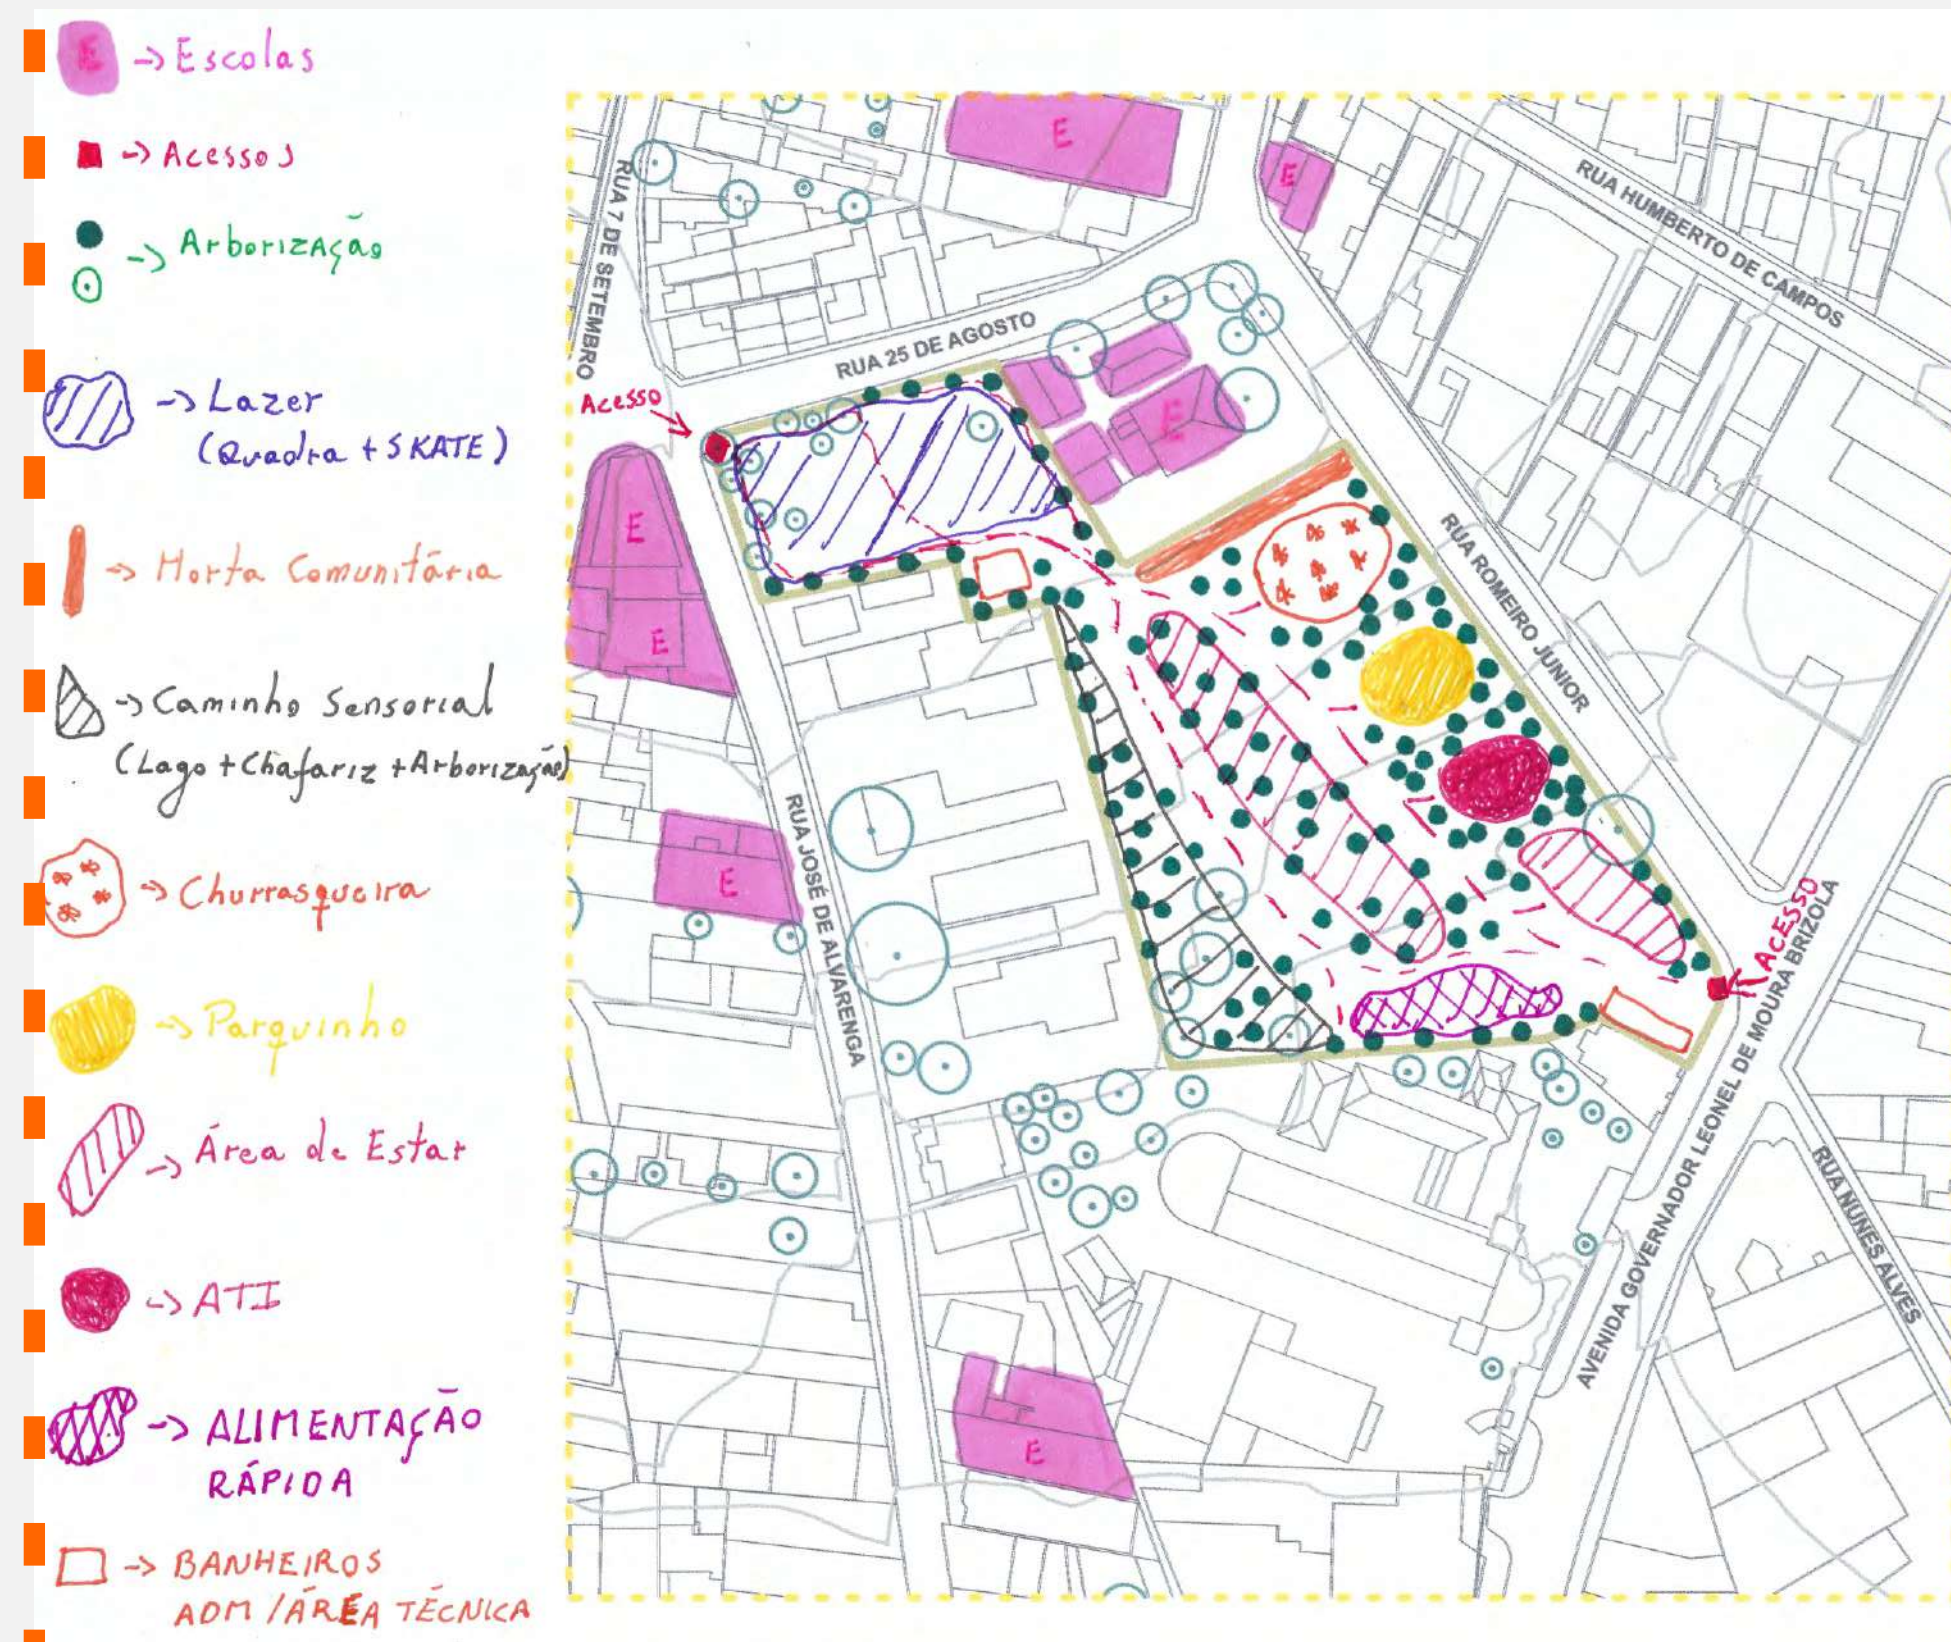 E → Escolas
→ Acessos
→ Arborização
→ Lazer
(Quadra + SKATE)
→ Horta Comunitária
→ Caminho Sensorial
(Lago + Chafariz + Arborização)
→ Churrasqueira
→ Parquinho
→ Área de Estar
→ ATI
→ ALIMENTAÇÃO
RÁPIDA
→ BANHEIROS
ADM / ÁREA TÉCNICA
E
E
RUA HUMBERTO DE CAMPOS
RUA 7 DE SETEMBRO
RUA 25 DE AGOSTO
Acesso
E
E
E
RUA ROMEIRO JUNIOR
RUA JOSÉ DE ALVARENGA
E
ACESSO
AVENIDA GOVERNADOR LEONEL DE MOURA BRIZOLA
RUA NUNES ALVES
E